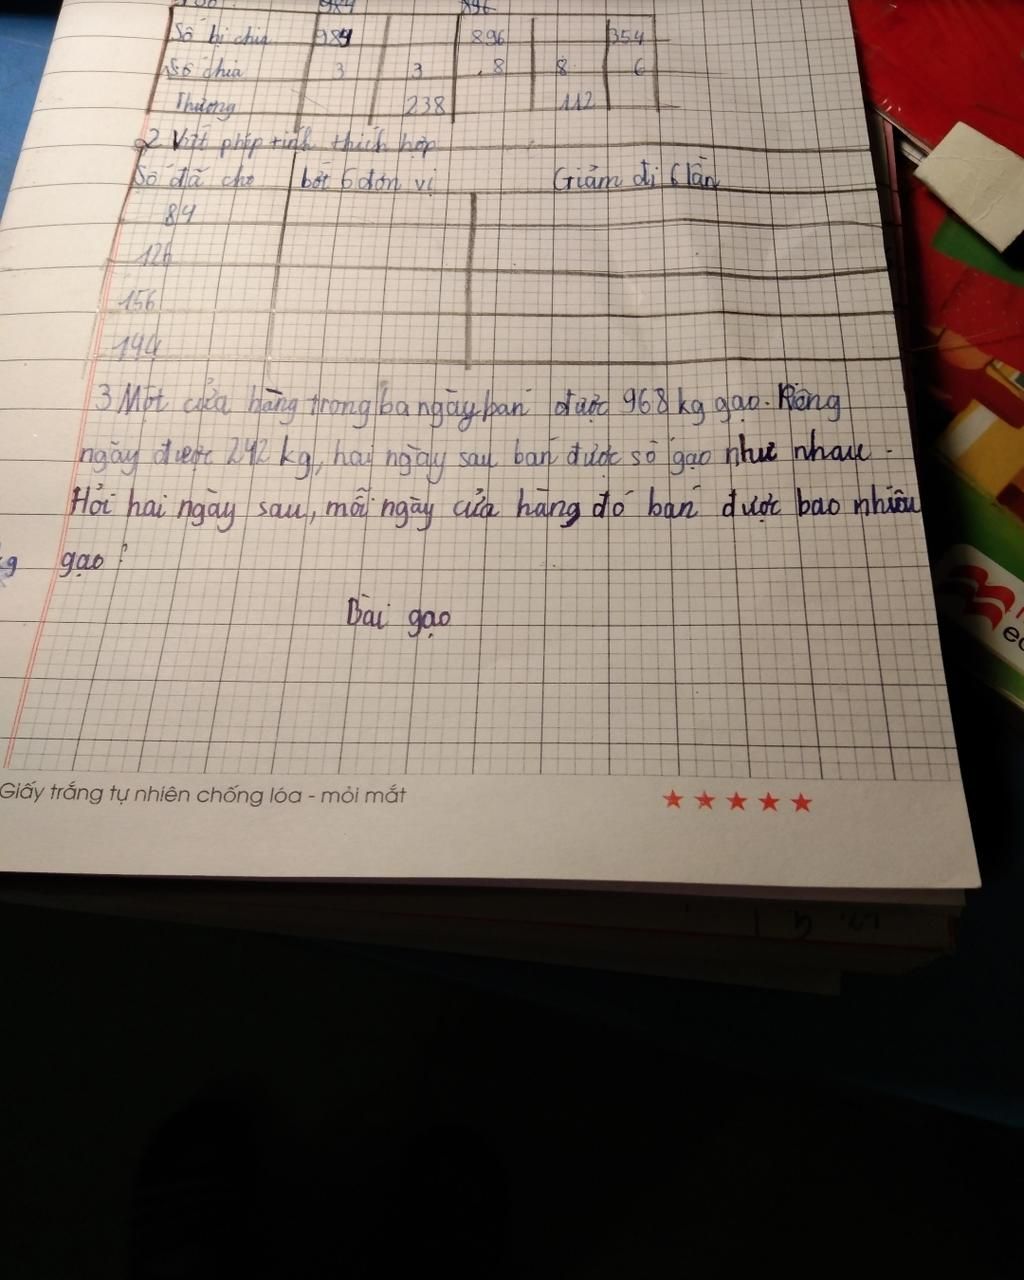 984 896
Số bị chia 984 896 354
Số chia 3 3 8 8 6
Thương 238 112
2 Viết phép tính thích hợp
Số đã cho bớt 6 đơn vị Giảm đi 6 lần
84
126
156
194
3 Một cửa hàng trong ba ngày bán được 968 kg gạo. Riêng
ngày được 242 kg, hai ngày sau bán được số gạo như nhau.
Hỏi hai ngày sau, mỗi ngày cửa hàng đó bán được bao nhiêu
kg gạo?
Bài gạo
Giấy trắng tự nhiên chống lóa - mỏi mắt